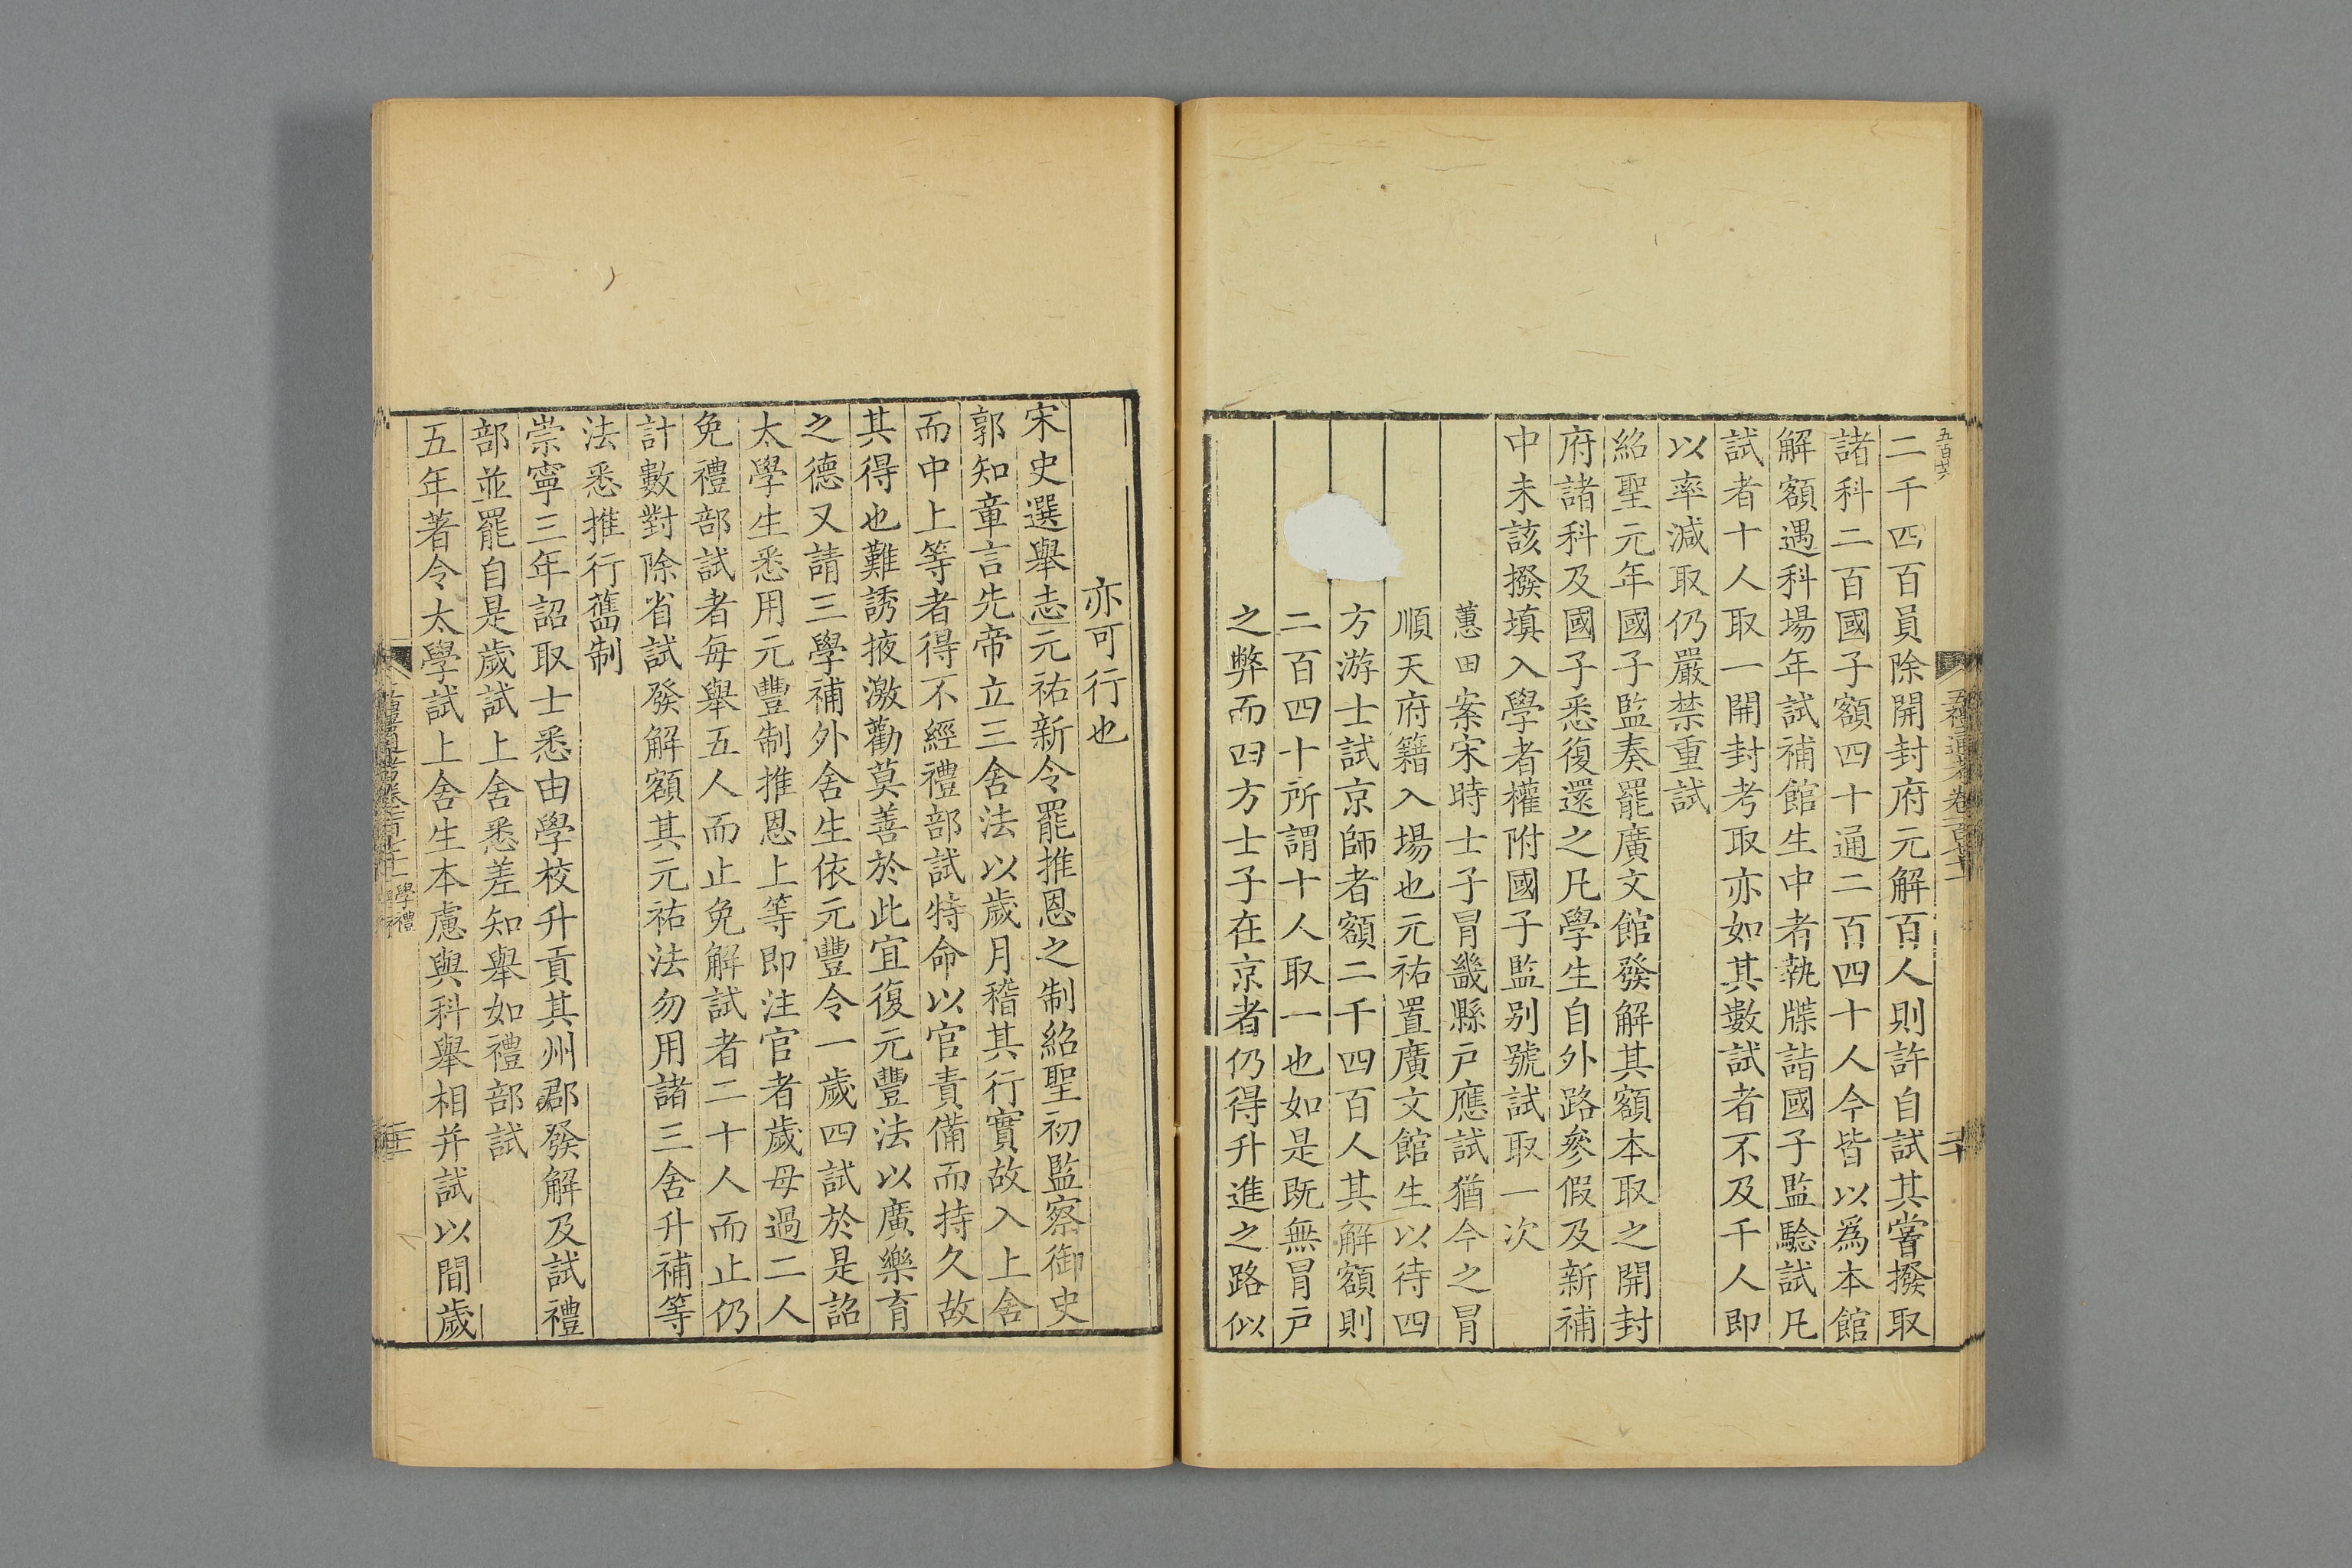 五百六
二千四百員除開封府元解百人則許自試其嘗撥取
諸科二百國子額四十通二百四十人今皆以爲本館
解額遇科場年試補館生中者執牒詣國子監驗試凡
試者十人取一開封考取亦如其數試者不及千人即
以率減取仍嚴禁重試
紹聖元年國子監奏罷廣文館發解其額本取之開封
府諸科及國子悉復還之凡學生自外路參假及新補
中未該撥填入學者權附國子監别號試取一次
蕙田案宋時士子冒畿縣戸應試猶今之冒
順天府籍入場也元祐置廣文館生以待四
方游士試京師者額二千四百人其解額則
二百四十所謂十人取一也如是既無冒戸
之弊而四方士子在京者仍得升進之路似
亦可行也
宋史選舉志元祐新令罷推恩之制紹聖初監察御史
郭知章言先帝立三舍法以歲月稽其行實故入上舍
而中上等者得不經禮部試特命以官責備而持久故
其得也難誘掖激勸莫善於此宜復元豐法以廣樂育
之德又請三學補外舍生依元豐令一歲四試於是詔
太學生悉用元豐制推恩上等即注官者歲毋過二人
免禮部試者每舉五人而止免解試者二十人而止仍
計數對除省試發解額其元祐法勿用諸三舍升補等
法悉推行舊制
崇寧三年詔取士悉由學校升貢其州郡發解及試禮
部並罷自是歲試上舍悉差知舉如禮部試
五年著令太學試上舍生本慮與科舉相并試以間歲
學禮